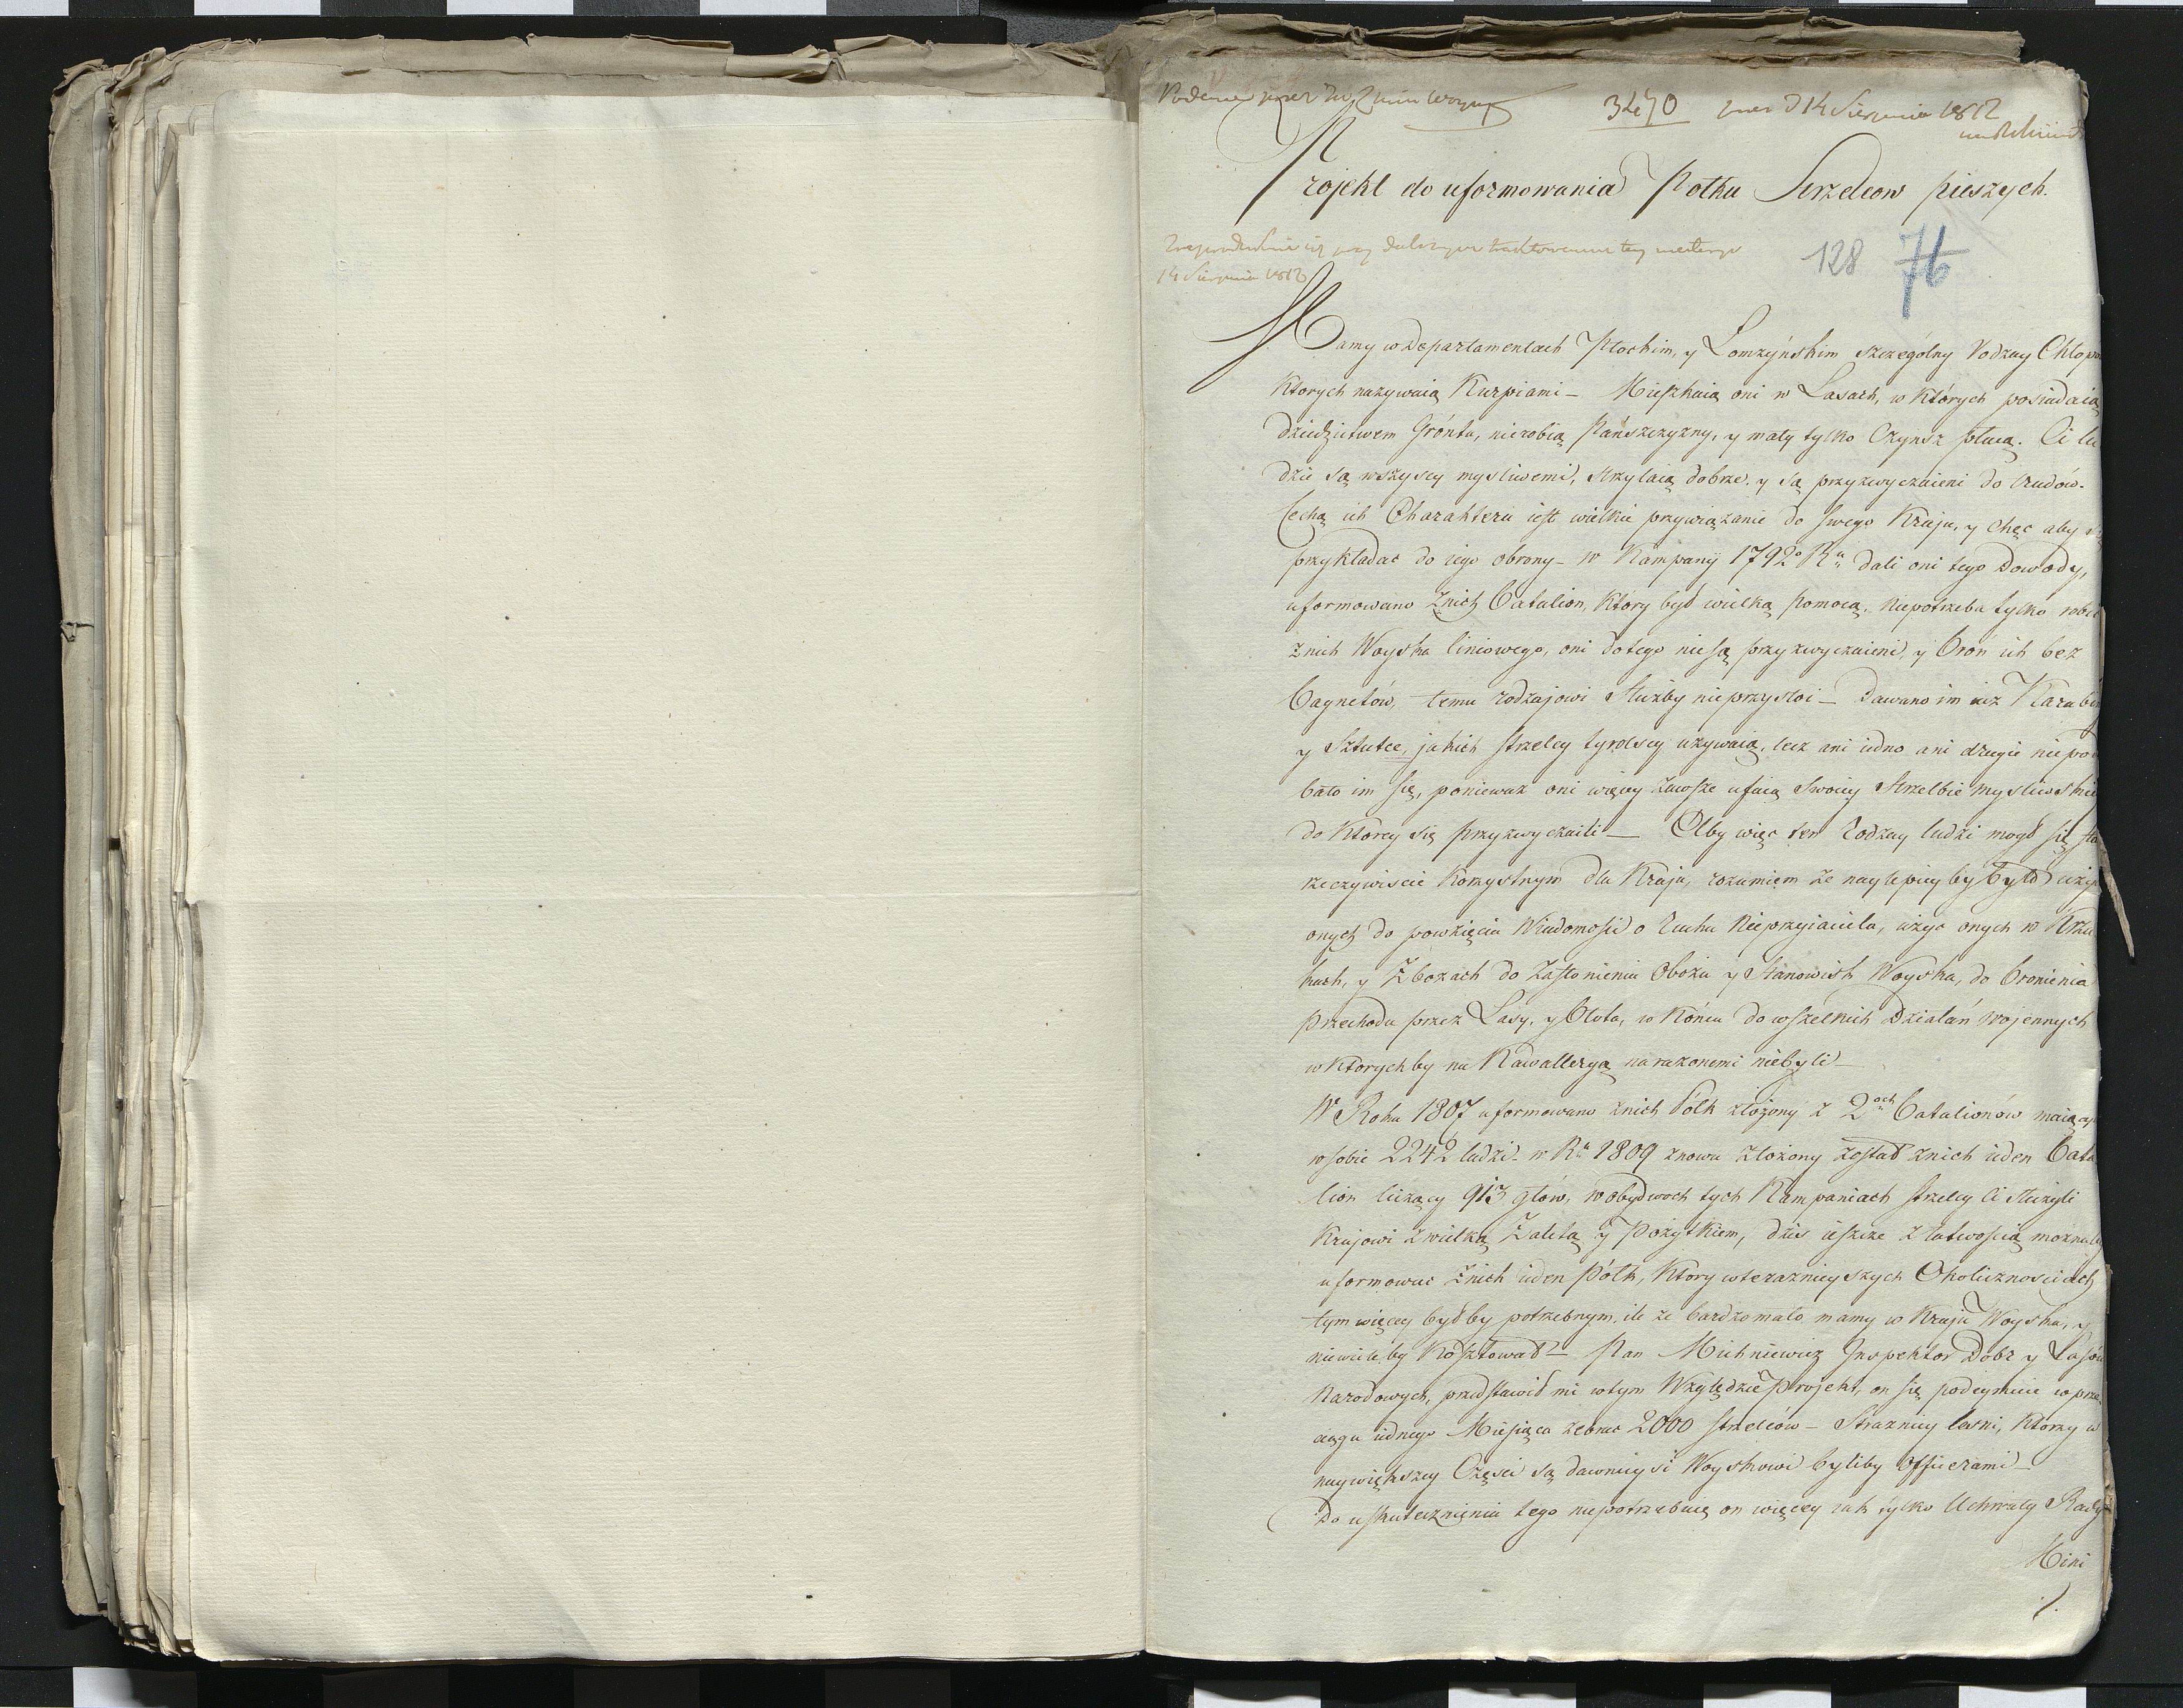 Podane przez JW Min Woyny
3270 znes d 14 Sierpnia 1812
Projekt do uformowania Połku Strzelcow pieszych.
przy dalszym traktowaniu tey materyi
14 Sierpnia 1812
128 76
Mamy w Departamentach Płockim, y Łomzyńskim szczególny Rodzay Chłopow
Ktorych nazywaią Kurpiami – Mieszkaią oni w Lasach, w Których posiadaią
Dziedzictwem Grónta, nierobią Pańszczyzny, y mały tylko Czynsz płacą. Ci lu
dzie są wszyscy mysliwemi, strzylaią dobrze, y są przyzwyczaieni do trudów.
Cechą ich Charakteru iest wielkie przywiązanie do swego Kraju, y chęć aby się
przykładać do iego obrony – w Kampanij 1792o Ru dali oni tego Dowody,
uformowano znich Batalion, Który był wielką Pomocą, niepotrzeba tylko robić
znich Woyska liniowego, oni dotego niesą przyzwyczaieni, y Broń ich bez
Bagnetów, temu rodzajowi Służby nieprzystoi – Dawano im iuż Karabiny
y Sztutce, jakich strzelcy tyrolscy używaią, lecz ani iedno ani drugie niepodo
bało im się, ponieważ oni więcey zawsze ufaią Swoiey Strzelbie mysliwskiey
do Ktorey się przyzwyczaili – Aby więc ten Rodzay ludzi mogł się sta
rzeczywiscie Korzystnym dla Kraju, rozumiem że naylepiey by było użyć
onych do powzięcia Wiadomości o Ruchu Nieprzyiaciela, użyc onych w Krza
kach, y Zbożach do Zasłonienia Obozu y Stanowisk Woyska, do bronienia
Przechodu przez Lasy, y Błota, w Końcu do wszelkich Działań Wojennych
w Ktorychby na Kawalleryą narażonemi niebyli –
W Roku 1807 uformowano znich Półk złożony z 2och Batalionów maiący
w sobie 2242 ludzi – w Ru 1809 znowu złożony został znich ieden Bata
lion liczący 913 głów, w obydwoch tych Kampaniach strzelcy ci służyli
Krajowi z wielką Zaletą y Pożytkiem, dziś ieszcze z łatwością możnaby
uformować znich ieden Półk, Ktory w teraznieyszych Okolicznosciach
tym więcey byłby potrzebnym, ile że bardzo mało mamy w Kraju Woyska, y
niewieleby Kosztował – Pan Michniewicz Inspektor Dóbr y Lasów
Narodowych, przedstawił mi w tym Względzie Projekt, on się podeymuie w prze
ciągu iednego Miesiąca zebrać 2000 strzelców – Strażnicy leśni, Ktorzy w
naywiększey Części są dawnieysi Woyskowi byliby Officerami –
Do uskutecznienia tego niepotrzebuie on więcey iak tylko Uchwały Rady
Mini